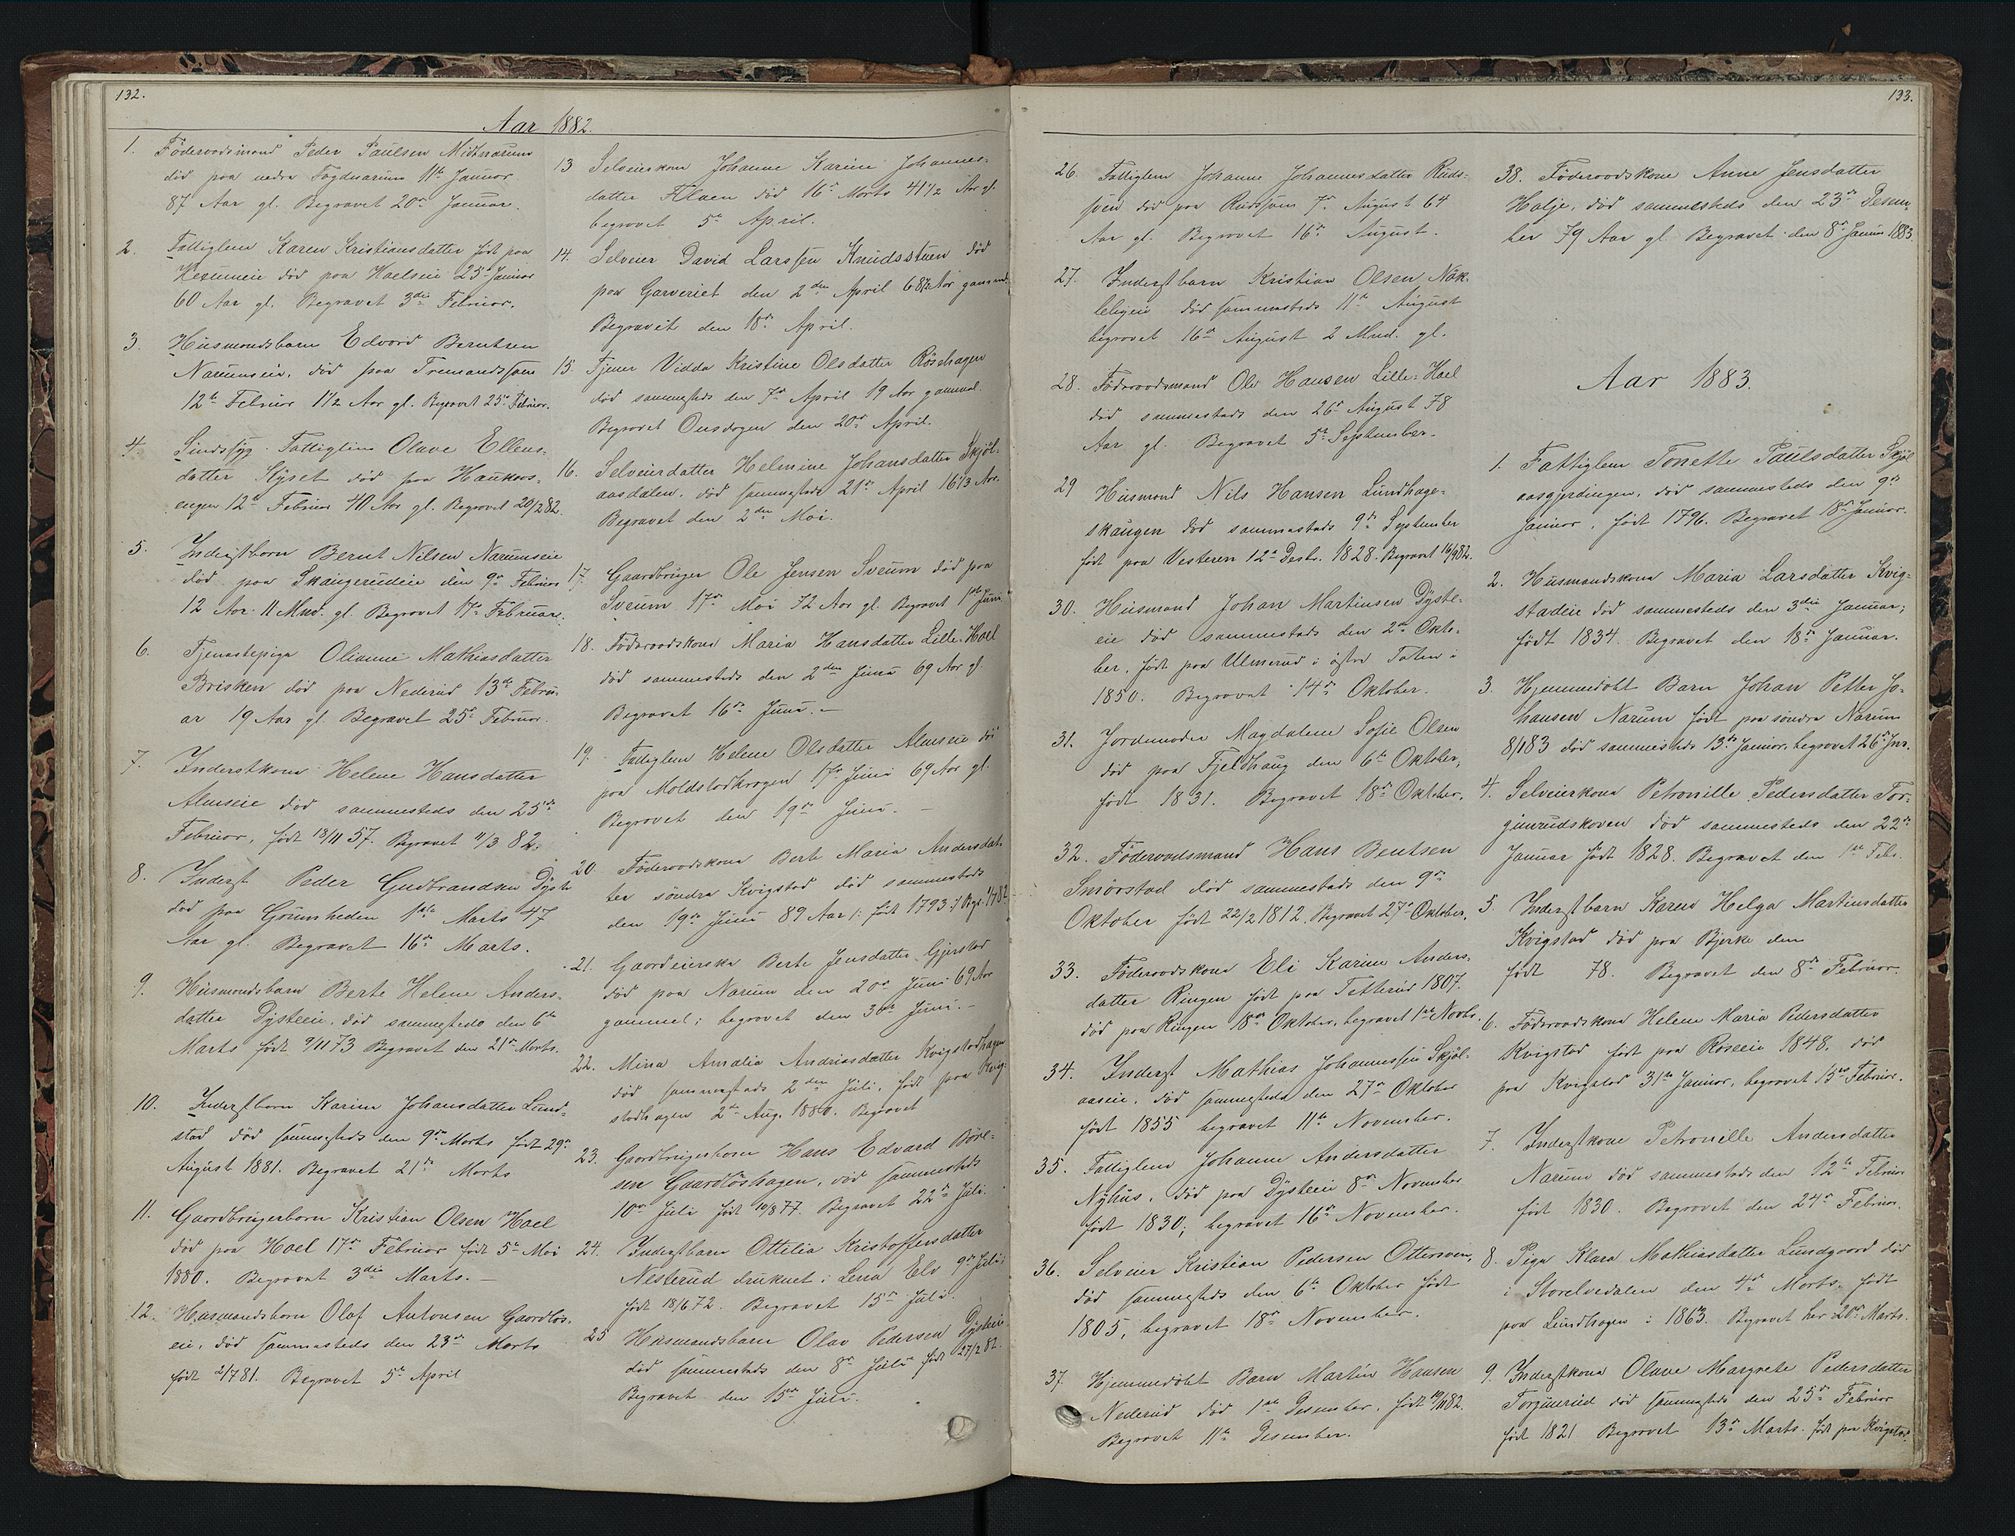 132.
Aar 1882.
1. Föderaadsmand Peder Paulsen Midtnarum
död paa nedre Fogdnarum 11te Januar
87 Aar gl. Begravet 20de Januar.
2. Fattiglem Karen Kristiansdatter föt paa
död paa Haelseie 25de Januar
60 Aar gl. Begravet 3die Februar.
3. Husmandsbarn Edvard Berntsen
Narumseie, död paa
12te Februar 1 1/2 Aar gl. Begravet 25de Februar.
4. Sindssyg Fattiglem Olave Ellens-
datter död paa Haukaas-
engen 12te Februar 40 Aar gl. Begravet 20/2 82.
5. Inderstbarn Bernt Nilsen Narumseie
död paa Skaugerudeie den 9de Februar
12 Aar 11 Mnd. gl. Begravet 17de Februar.
6. Tjenestepige Olianne Mathiasdatter
Brisken död paa Nederud 13de Febru-
ar 19 Aar gl. Begravet 25de Februar.
7. Inderstkone Helene Hansdatter
Almseie död sammesteds den 25de
Februar, født 18/11 57. Begravet 11/3 82.
8. Inderst Peder Gudbrandsen Dyste
död paa Grimsheden 1ste Marts 47
Aar gl. Begravet 16de Marts.
9. Husmandsbarn Berte Helene Anders-
datter Dysteeie, död sammesteds den 6te
Marts født 9/11 73 Begravet den 21de Marts.
10. Inderstbarn Karine Johansdatter Lund-
stad död sammesteds den 9de Marts født 29de
August 1881. Begravet 21de Marts
11. Gaardbrugerbarn Kristian Olsen Hael
död paa Hael 17de Februar født 5te Mai
1880. Begravet 3die Marts.
12. Husmandsbarn Olaf Antonsen Gaardlös-
eie, död sammesteds den 23de Marts
født 2/7 81. Begravet 5te April
13 Selveierkone Johanne Karine Johannes-
datter Flaen död 16de Marts 41 1/2 Aar gl.
begravet 5te April.
14. Selveier David Larssen Knudsstuen död
paa Garveriet den 2den April 68 1/2 Aar gammel
Begravet den 18de April.
15. Tjener Vidda Kristine Olsdatter Röisehagen
död sammesteds den 7de April 19 Aar gammel.
Begravet Onsdagen den 20de April.
16. Selveierdatter Helmine Johansdatter Skjöl-
aasdalen, död sammesteds 21de April 16 1/3 Aar.
Begravet den 2den Mai.
17. Gaardbruger Ole Jensen Sveum död paa
Sveum 17de Mai 72 Aar gl. Begravet 1ste Juni.
18. Föderaadskone Maria Hansdatter Lille-Hael
död sammesteds den 2den Juni 69 Aar gl.
Begravet 16de Juni.-
19. Fattiglem Helene Olsdatter Almseie död
paa Moldstadkragen 17de Juni 69 Aar gl.
Begravet den 19de Juni.-
20 Föderaadskone Berte Maria Andersdat-
ter söndre Kvigstad död sammesteds
den 19de Juni 89 Aar /: født 1793 :/ Begr. 1/7 82
21. Gaardeierske Berte Jensdatter Gjerstad
död paa Narum den 20de Juni 69 Aar
gammel; begravet den 30te Juni.-
22. Mina Amalia Andreasdatter Kvigstadhagen
död sammesteds 2den Juli. født paa Kvig-
stadhagen 2den Aug. 1880. Begravet
23. Gaardbrugerbarn Hans Edvard Böre-
sen Gaardlöshagen, död sammesteds
10de Juli født 10/8 77. Begravet 22de Juli.
24. Inderstbarn Ottilia Kristoffersdatter
Nesterud druknet i Lena Elv 9de Juli;
født 18/6 72. Begravet 15de Juli.
25 Husmandsbarn Olav Pedersen Dysteeie
död sammesteds den 8de Juli født 27/2 82.
Begravet den 15de Juli.
133.
26. Fattiglem Johanne Johannesdatter Ruds-
sveen död paa Rudssveen 7de August 64
Aar gl. Begravet 16de August.
27. Inderstbarn Kristian Olsen Nök-
lebyeie död sammesteds 11te August
begravet 16de August 2 Mnd. gl.
28. Föderaadsmand Ole Hansen Lille-Hael
död sammesteds den 26de August 78
Aar gl. Begravet 5te September.
29 Husmand Nils Hansen Lundhage-
skaugen död sammesteds 9de September
født paa Vesteren 12te Desbr. 1828. Begravet 16/9 82.
30. Husmand Johan Martinsen Dyste-
eie död sammesteds den 2den Okto-
ber, født paa Ulnerud i östre Toten i
1850. Begravet 14de Oktober.
31. Jordemoder Magdalene Sofie Olsen
död paa Fjeldhaug den 6te Oktober,
født 1831. Begravet 18de Oktober.
32. Föderaadsmand Hans Bentsen
Smörstad död sammesteds den 9de
Oktober født 22/2 1812. Begravet 27de Oktober.
33. Föderaadskone Eli Karine Anders-
datter Ringen født paa Tetterud 1807.
död paa Ringen 18de Oktober, begravet 1ste Novbr.
34. Inderst Mathias Johannessen Skjöl-
aaseie, död sammesteds den 27de Oktober
født 1855 begravet 11te November.
35. Fattiglem Johanne Andersdatter
Nyhus, död paa Dysteeie 8de November
født 1830; begravet 16de November.
36. Selveier Kristian Pedersen Ottersveen,
död sammesteds den 6te Oktober født
1805, begravet 18de November.
37. Hjemmedöbt Barn Martin Hansen
Nederud död 1ste Desember, født 19/11 82.
Begravet 11te Desember.
38. Föderaadskone Anne Jensdatter
Halje, död sammesteds den 23de Desem-
ber 79 Aar gl. Begravet den 8de Januar 1883.
Aar 1883.
1. Fattiglem Tonette Paulsdatter Skjöl-
aasgjerdingen, död sammesteds den 9de
Januar, født 1796. Begravet 18de Januar.
2. Husmandskone Maria Larsdatter Kvig-
stadeie död sammesteds den 3die Januar;
født 1834. Begravet den 18de Januar.
3. Hjemmedöbt Barn Johan Petter Jo-
hansen Narum født paa söndre Narum
8/1 83 död sammesteds 13de Januar, begravet 26de Jnr.
4. Selveierkone Petronille Pedersdatter Tor-
gunrudskoven död sammesteds den 22de
Januar født 1828. Begravet den 1ste Febr.
5. Inderstbarn Karen Helga Martinsdatter
Kvigstad död paa Bjerke den
født 78. Begravet den 8de Februar.
6. Föderaadskone Helene Maria Pedersdatter
Kvigstad født paa Roseeie 1848. död
paa Kvigstad 31te Januar, begravet 15de Februar.
7. Inderstkone Petronille Andersdatter
Narum död sammesteds den 12te Februar
født 1830. Begravet den 24de Februar.
8. Pige Klara Mathiasdatter Lundgaard död
i Storelvedalen den 4de Marts født
paa Lundhagen i 1863. Begravet her 20de Marts.
9. Inderstkone Olave Margrete Pedersdatter
Torgunrud död sammesteds den 25de Februar
født 1821 Begravet 13de Marts. født paa Kvigstad.